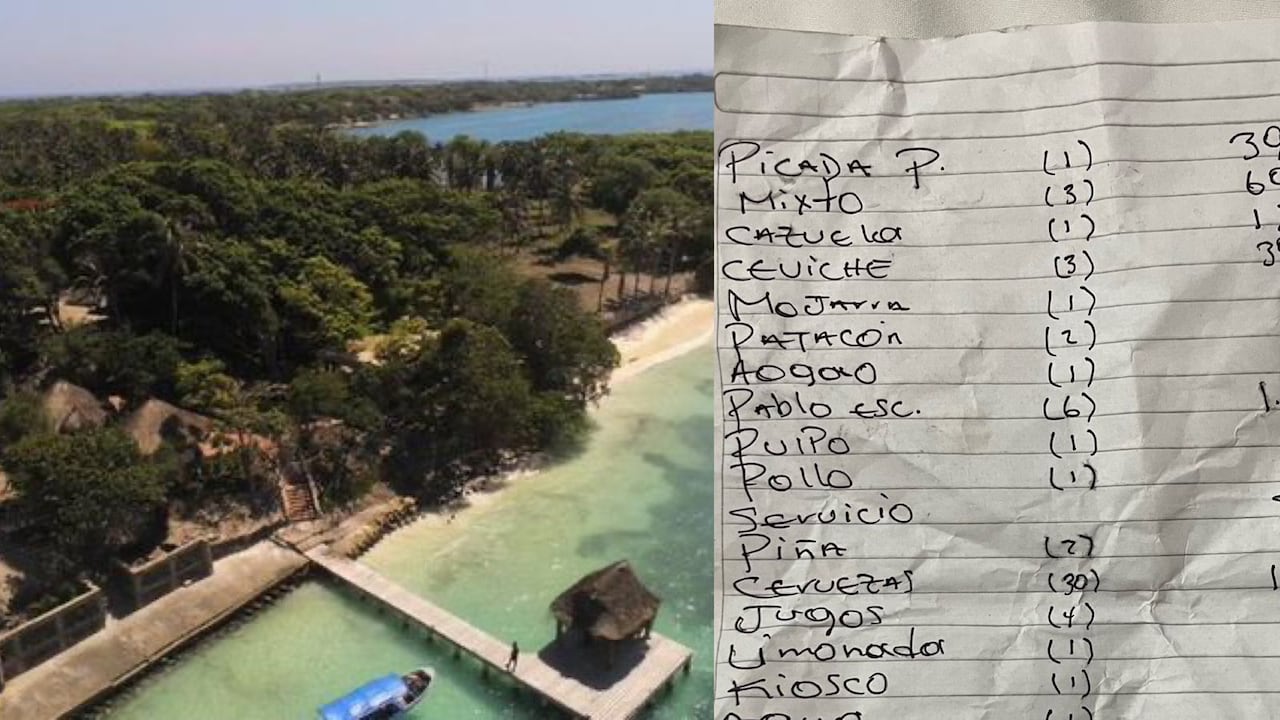 PICADA P. (1) 39
MIXTO (3) 60
CAZUELA (1) 1
CEVICHE (3) 3
MOJARRA (1)
PATACÓN (2)
AOGAO (1)
PABLO ESC. (6) 1.
PULPO (1)
POLLO (1)
SERVICIO
PIÑA (2)
CERVEZAS (30) 1
JUGOS (4)
LIMONADA (1)
KIOSCO (1)
(1)